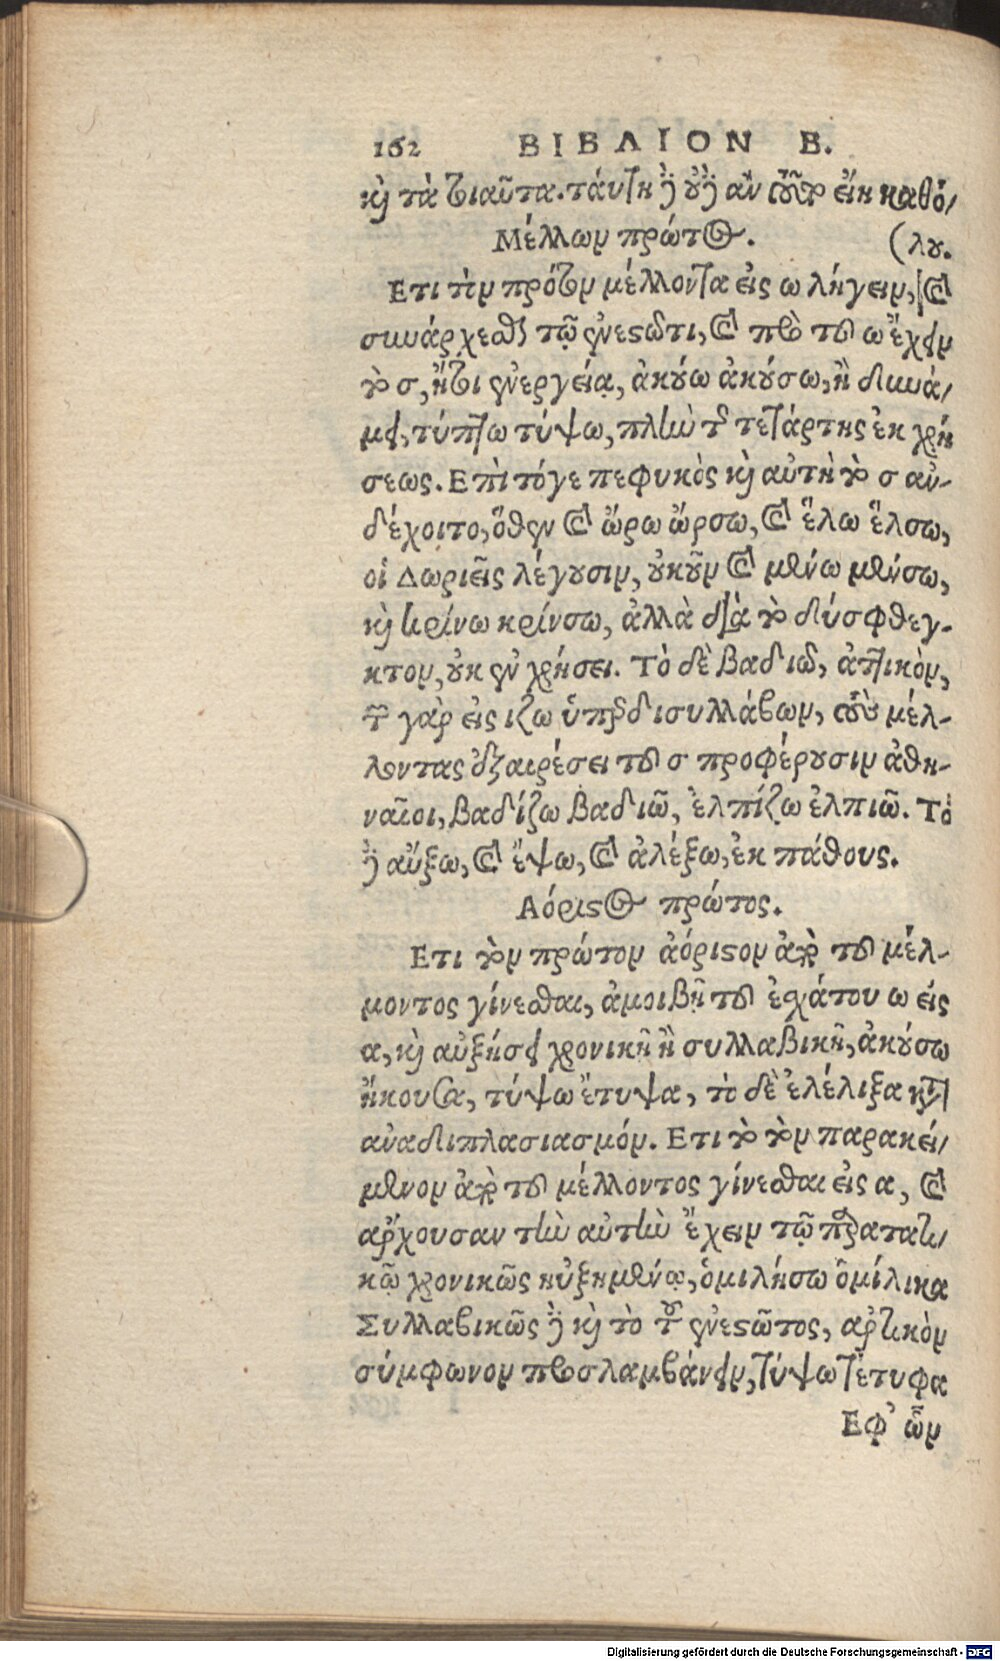 162 ΒΙΒΛΙΟΝ Β.
καὶ τὰ τοιαῦτα. ταύτῃ δὲ οὐδ' ἂν εἴη καθό/
Μέλλων πρῶτος. (λου.
Ετι τὸν πρῶτον μέλλοντα εἰς ω λήγειν, καὶ
συνάρχεσθαι τῷ ἐνεστῶτι, καὶ πρὸ τοῦ ω ἔχειν
τὸ σ, ἤτοι ἐνεργείᾳ, ἀκούω ἀκούσω, ἢ δυνά/
μει, τύπτω τύψω, πλὴν τῆς τετάρτης ἐκ χρή
σεως. Επὶ τόγε πεφυκὸς καὶ αὐτὴ τὸ σ ἀν-
δέχοιτο, ὅθεν καὶ ὤρω ὤρσω, καὶ ἔλω ἔλσω,
οἱ Δωριεῖς λέγουσιν, οὐκοῦν καὶ μενώ μενύσω,
καὶ κρίνω κρίνσω, ἀλλὰ διὰ τὸ δύσφθεγ-
κτον, οὐκ ἐν χρήσει. Τὸ δὲ βαδιῶ, ἀττικὸν,
τῶν γὰρ εἰς ιζω ὑπὲρ δισυλλάβων, τοὺς μέλ-
λοντας ἐξαιρέσει τοῦ σ προφέρουσιν ἀθη-
ναῖοι, βαδίζω βαδιῶ, ἐλπίζω ἐλπιῶ. Τὸ
δὲ αὔξω, καὶ ἕψω, καὶ ἀλέξω, ἐκ πάθους.
Αόριστος πρῶτος.
Ετι τὸν πρώτον ἀόριστον ἀπὸ τοῦ μέλ-
μοντος γίνεσθαι, ἀμοιβῇ τοῦ ἐσχάτου ω εἰς
α, καὶ αὐξήσει χρονικῇ ἢ συλλαβικῇ, ἀκούσω
ἤκουσα, τύψω ἔτυψα, τὸ δὲ ἐλέλιξα κατ'
ἀναδιπλασιασμόν. Ετι τὸ τὸν παρακεί/
μενον ἀπὸ τοῦ μέλλοντος γίνεσθαι εἰς α, καὶ
ἄρχουσαν τὴν αὐτὴν ἔχειν τῷ παρατατι/
κῷ χρονικῶς ηὐξημένῳ, ὁμιλήσω ὁμίλικα
Συλλαβικῶς δὲ καὶ τὸ τοῦ ἐνεστῶτος, ἀρκτικὸν
σύμφωνον προσλαμβάνειν, τύψω τέτυφα
Εφ' ὧν
Digitalisierung gefördert durch die Deutsche Forschungsgemeinschaft - DFG